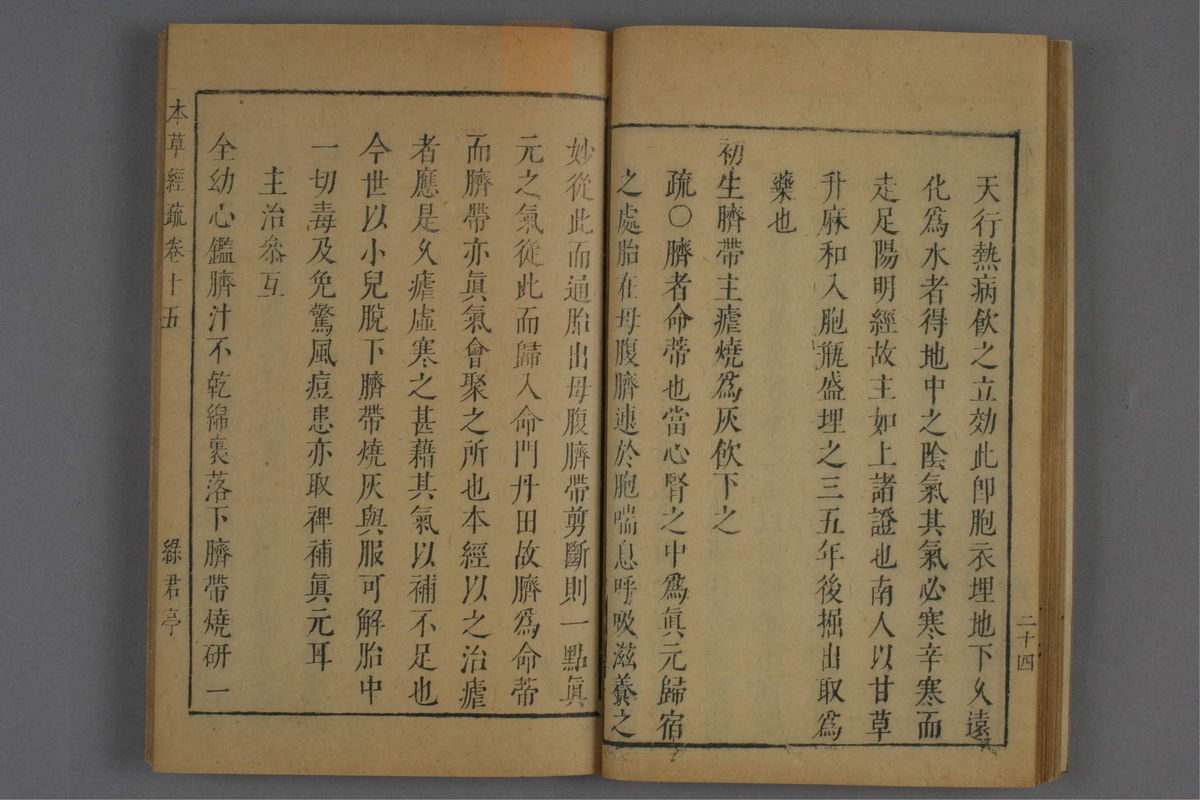 天行熱病飲之立効此卽胞衣埋地下久遠
化爲水者得地中之陰氣其氣必寒辛寒而
走足陽明經故主如上諸證也南人以甘草
升麻和入胞瓶盛埋之三五年後掘出取爲
藥也
初生臍帶主瘧燒爲灰飲下之
疏〇臍者命蒂也當心腎之中爲眞元歸宿
之處胎在母腹臍連於胞喘息呼吸滋養之
二十四
妙從此而通胎出母腹臍帶剪斷則一點眞
元之氣從此而歸入命門丹田故臍爲命蒂
而臍帶亦眞氣會聚之所也本經以之治瘧
者應是久瘧虛寒之甚藉其氣以補不足也
今世以小兒脫下臍帶燒灰與服可解胎中
一切毒及免驚風痘患亦取裨補眞元耳
主治叅互
全幼心鑑臍汁不乾綿裹落下臍帶燒研一
本草經疏卷十五
綠君亭